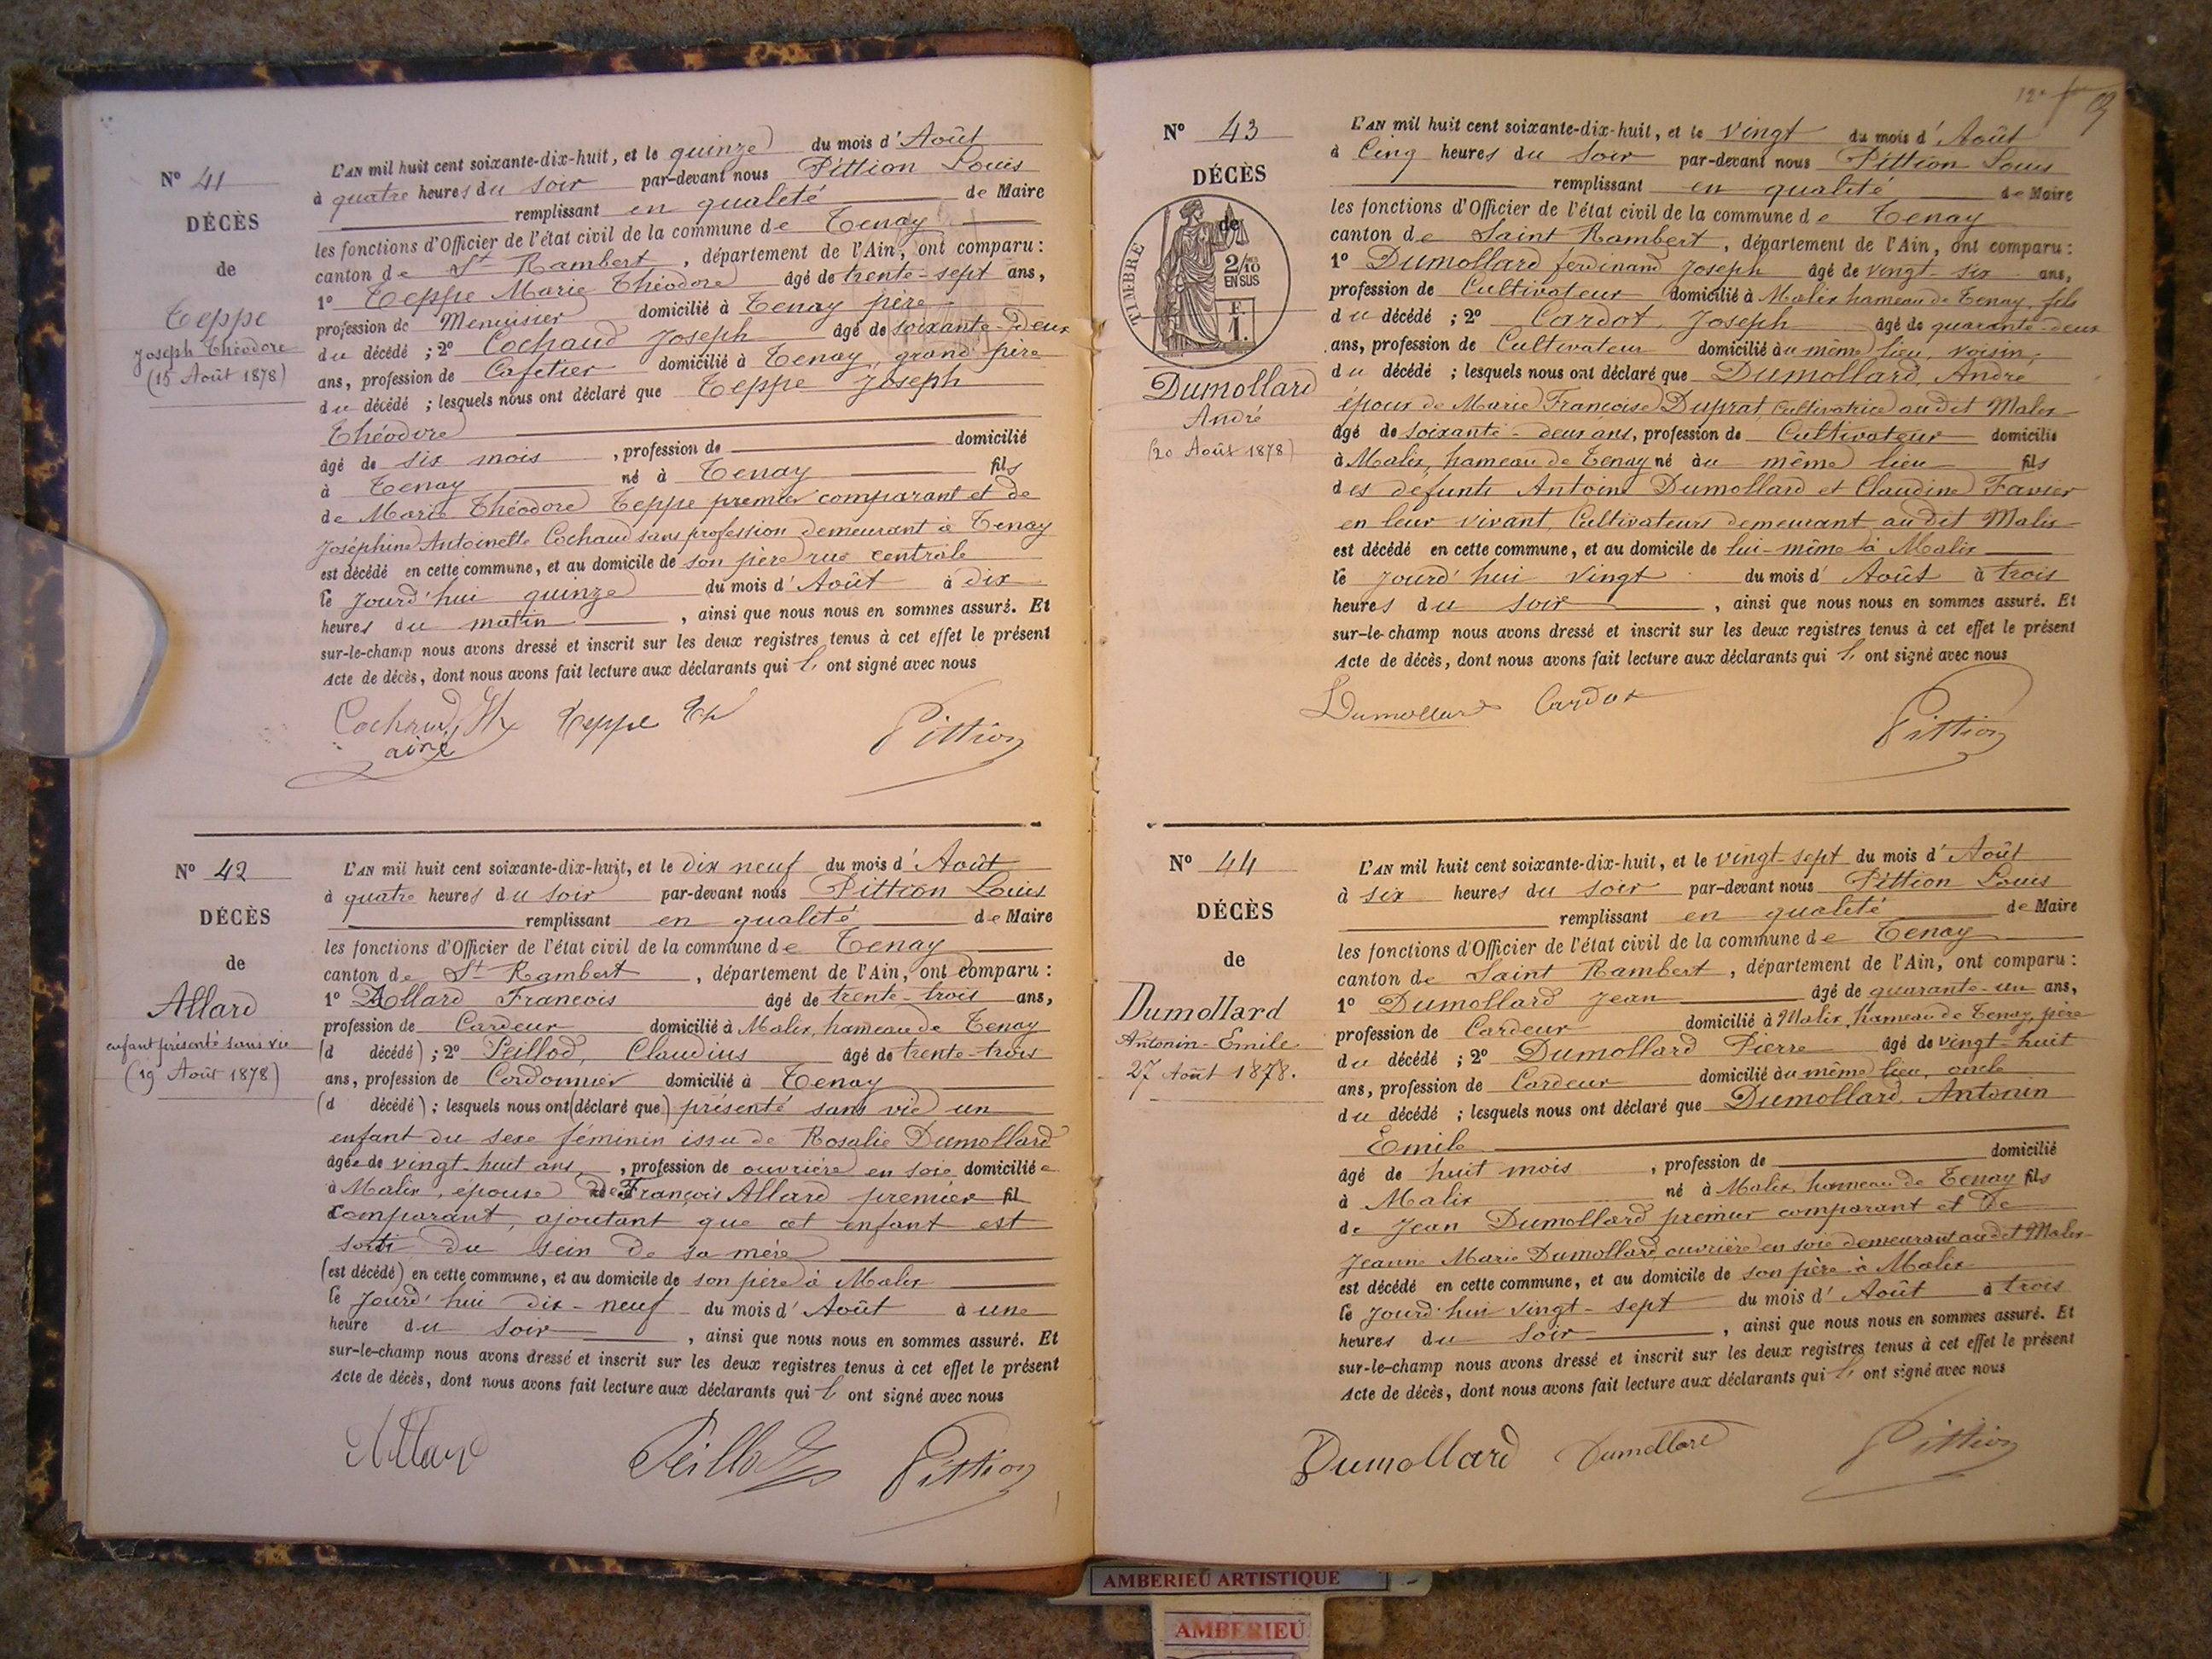 Nº 41
DÉCÈS
de
Teppe
Joseph Théodore
(15 Août 1878)
L'AN mil huit cent soixante-dix-huit, et le quinze du mois d'Août
à quatre heures du soir par-devant nous Pittion Louis
remplissant en qualité de Maire
les fonctions d'Officier de l'état civil de la commune de Tenay
canton de St Rambert, département de l'Ain, ont comparu :
1º Teppe Marie Théodore âgé de trente-sept ans,
profession de Menuisier domicilié à Tenay père
du décédé ; 2º Cochaud Joseph âgé de soixante-deux
ans, profession de Cafetier domicilié à Tenay, grand père
du décédé ; lesquels nous ont déclaré que Teppe Joseph
Théodore
âgé de six mois, profession de domicilié
à Tenay né à Tenay fils
de Marie Théodore Teppe premier comparant et de
Joséphine Antoinette Cochaud sans profession demeurant à Tenay
est décédé en cette commune, et au domicile de son père rue centrale
le jourd'hui quinze du mois d'Août à dix
heures du matin, ainsi que nous nous en sommes assuré. Et
sur-le-champ nous avons dressé et inscrit sur les deux registres tenus à cet effet le présent
Acte de décès, dont nous avons fait lecture aux déclarants qui l' ont signé avec nous
Cochaud Teppe Th Pittion
aîné
Nº 42
DÉCÈS
de
Allard
enfant présenté sans vie
(19 Août 1878)
L'AN mil huit cent soixante-dix-huit, et le dix neuf du mois d'Août
à quatre heures du soir par-devant nous Pittion Louis
remplissant en qualité de Maire
les fonctions d'Officier de l'état civil de la commune de Tenay
canton de St Rambert, département de l'Ain, ont comparu :
1º Allard François âgé de trente-trois ans,
profession de Cardeur domicilié à Malix, hameau de Tenay
(d décédé) ; 2º Peillod, Claudius âgé de trente-trois
ans, profession de Cordonnier domicilié à Tenay
(d décédé) ; lesquels nous ont (déclaré que) présenté sans vie un
enfant du sexe féminin issu de Rosalie Dumollard
âgée de vingt-huit ans, profession de ouvrière en soie domiciliée
à Malix, épouse de François Allard premier fil
comparant, ajoutant que cet enfant est
sorti du sein de sa mère
(est décédé) en cette commune, et au domicile de son père à Malix
le jourd'hui dix-neuf du mois d'Août à une
heure du soir, ainsi que nous nous en sommes assuré. Et
sur-le-champ nous avons dressé et inscrit sur les deux registres tenus à cet effet le présent
Acte de décès, dont nous avons fait lecture aux déclarants qui l' ont signé avec nous
Allard Peillod Pittion
Nº 43
DÉCÈS
de
TIMBRE
2/10
EN SUS
F.
1.
Dumollard
André
(20 Août 1878)
L'AN mil huit cent soixante-dix-huit, et le vingt du mois d'Août
à Cinq heures du soir par-devant nous Pittion Louis
remplissant en qualité de Maire
les fonctions d'Officier de l'état civil de la commune de Tenay
canton de Saint Rambert, département de l'Ain, ont comparu :
1º Dumollard ferdinand Joseph âgé de vingt-six ans,
profession de Cultivateur domicilié à Malix hameau de Tenay, fils
du décédé ; 2º Cardot, Joseph âgé de quarante-deux
ans, profession de Cultivateur domicilié au même lieu, voisin
du décédé ; lesquels nous ont déclaré que Dumollard, André
époux de Marie Françoise Duprat, cultivatrice au dit Malix
âgé de soixante-deux ans, profession de Cultivateur domicilié
à Malix, hameau de Tenay né au même lieu fils
des défunts Antoine Dumollard et Claudine Favier
en leur vivant, Cultivateurs demeurant au dit Malix
est décédé en cette commune, et au domicile de lui-même à Malix
le jourd'hui vingt du mois d'Août à trois
heures du soir, ainsi que nous nous en sommes assuré. Et
sur-le-champ nous avons dressé et inscrit sur les deux registres tenus à cet effet le présent
Acte de décès, dont nous avons fait lecture aux déclarants qui l' ont signé avec nous
Dumollard Cardot Pittion
Nº 44
DÉCÈS
de
Dumollard
Antonin-Emile
27 Août 1878.
L'AN mil huit cent soixante-dix-huit, et le vingt-sept du mois d'Août
à six heures du soir par-devant nous Pittion Louis
remplissant en qualité de Maire
les fonctions d'Officier de l'état civil de la commune de Tenay
canton de Saint Rambert, département de l'Ain, ont comparu :
1º Dumollard Jean âgé de quarante-un ans,
profession de Cardeur domicilié à Malix, hameau de Tenay, père
du décédé ; 2º Dumollard Pierre âgé de vingt-huit
ans, profession de Cardeur domicilié au même lieu, oncle
du décédé ; lesquels nous ont déclaré que Dumollard, Antonin
Emile
âgé de huit mois, profession de domicilié
à Malix né à Malix, hameau de Tenay fils
de Jean Dumollard premier comparant et de
Jeanne Marie Dumollard, ouvrière en soie demeurant au dit Malix
est décédé en cette commune, et au domicile de son père à Malix
le jourd'hui vingt-sept du mois d'Août à trois
heures du soir, ainsi que nous nous en sommes assuré. Et
sur-le-champ nous avons dressé et inscrit sur les deux registres tenus à cet effet le présent
Acte de décès, dont nous avons fait lecture aux déclarants qui l' ont signé avec nous
Dumollard Dumollard Pittion
AMBERIEU ARTISTIQUE
AMBERIEU